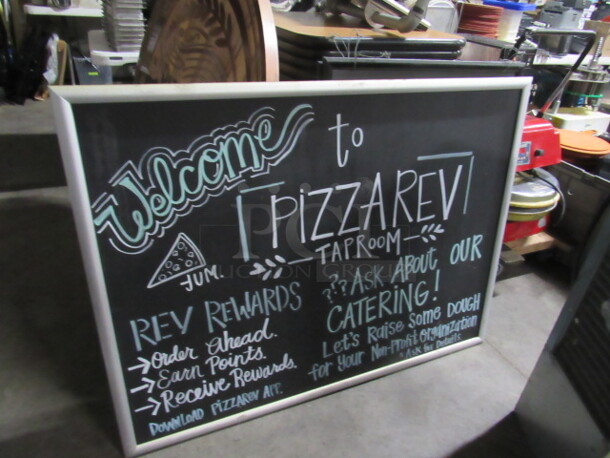 Welcome to
PIZZAREV
TAPROOM
YUM
REV REWARDS
→Order Ahead.
→Earn Points.
→Receive Rewards.
DOWNLOAD PIZZAREV APP.
???ASK ABOUT OUR
CATERING!
Let's Raise Some DOUGH
for Your Non-Profit Organization
*ASK for Details
PCI
AUCTION GROUP